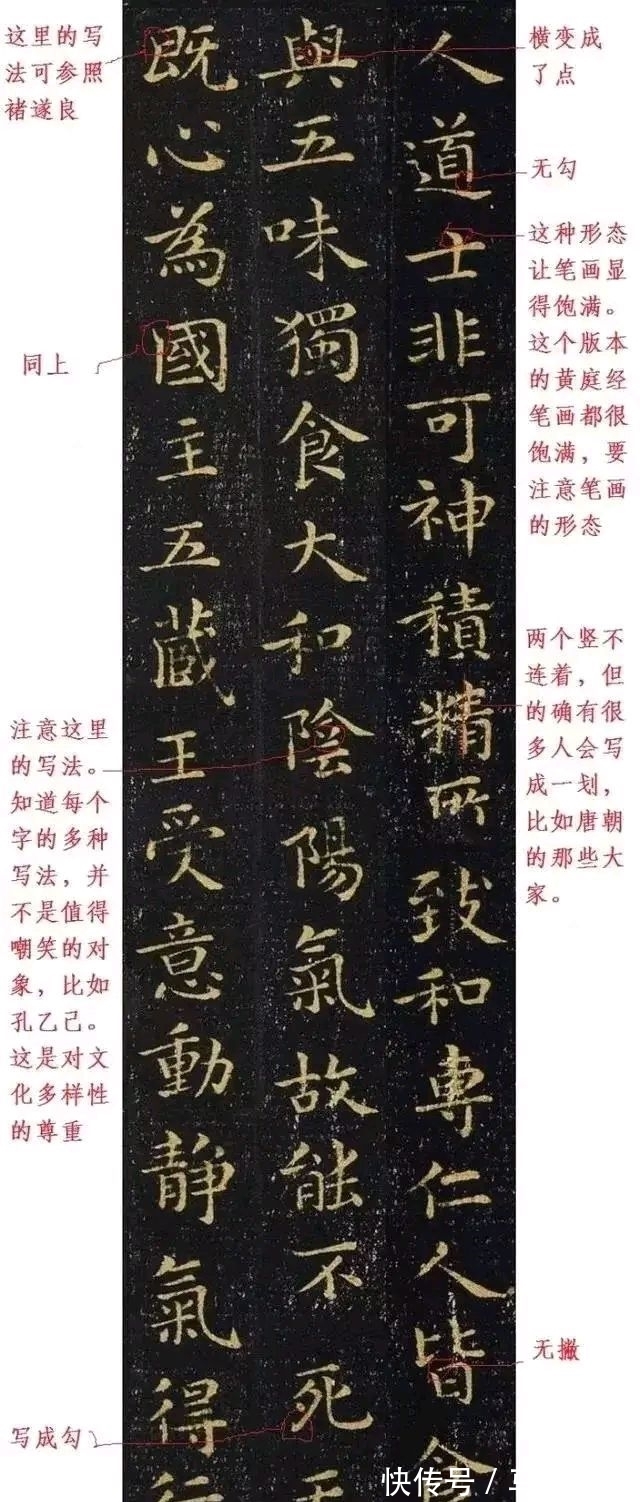 人道士非可神積精所致和專仁人皆
與五味獨食大和陰陽氣故能不死
既心為國主五藏王受意動靜氣得
这里的写
法可参照
褚遂良
同上
注意这里
的写法。
知道每个
字的多种
写法，并
不是值得
嘲笑的对
象，比如
孔乙己。
这是对文
化多样性
的尊重
写成勾
横变成
了点
无勾
这种形态
让笔画显
得饱满。
这个版本
的黄庭经
笔画都很
饱满，要
注意笔画
的形态
两个竖不
连着，但
的确有很
多人会写
成一划，
比如唐朝
的那些大
家。
无撇
快传号 /